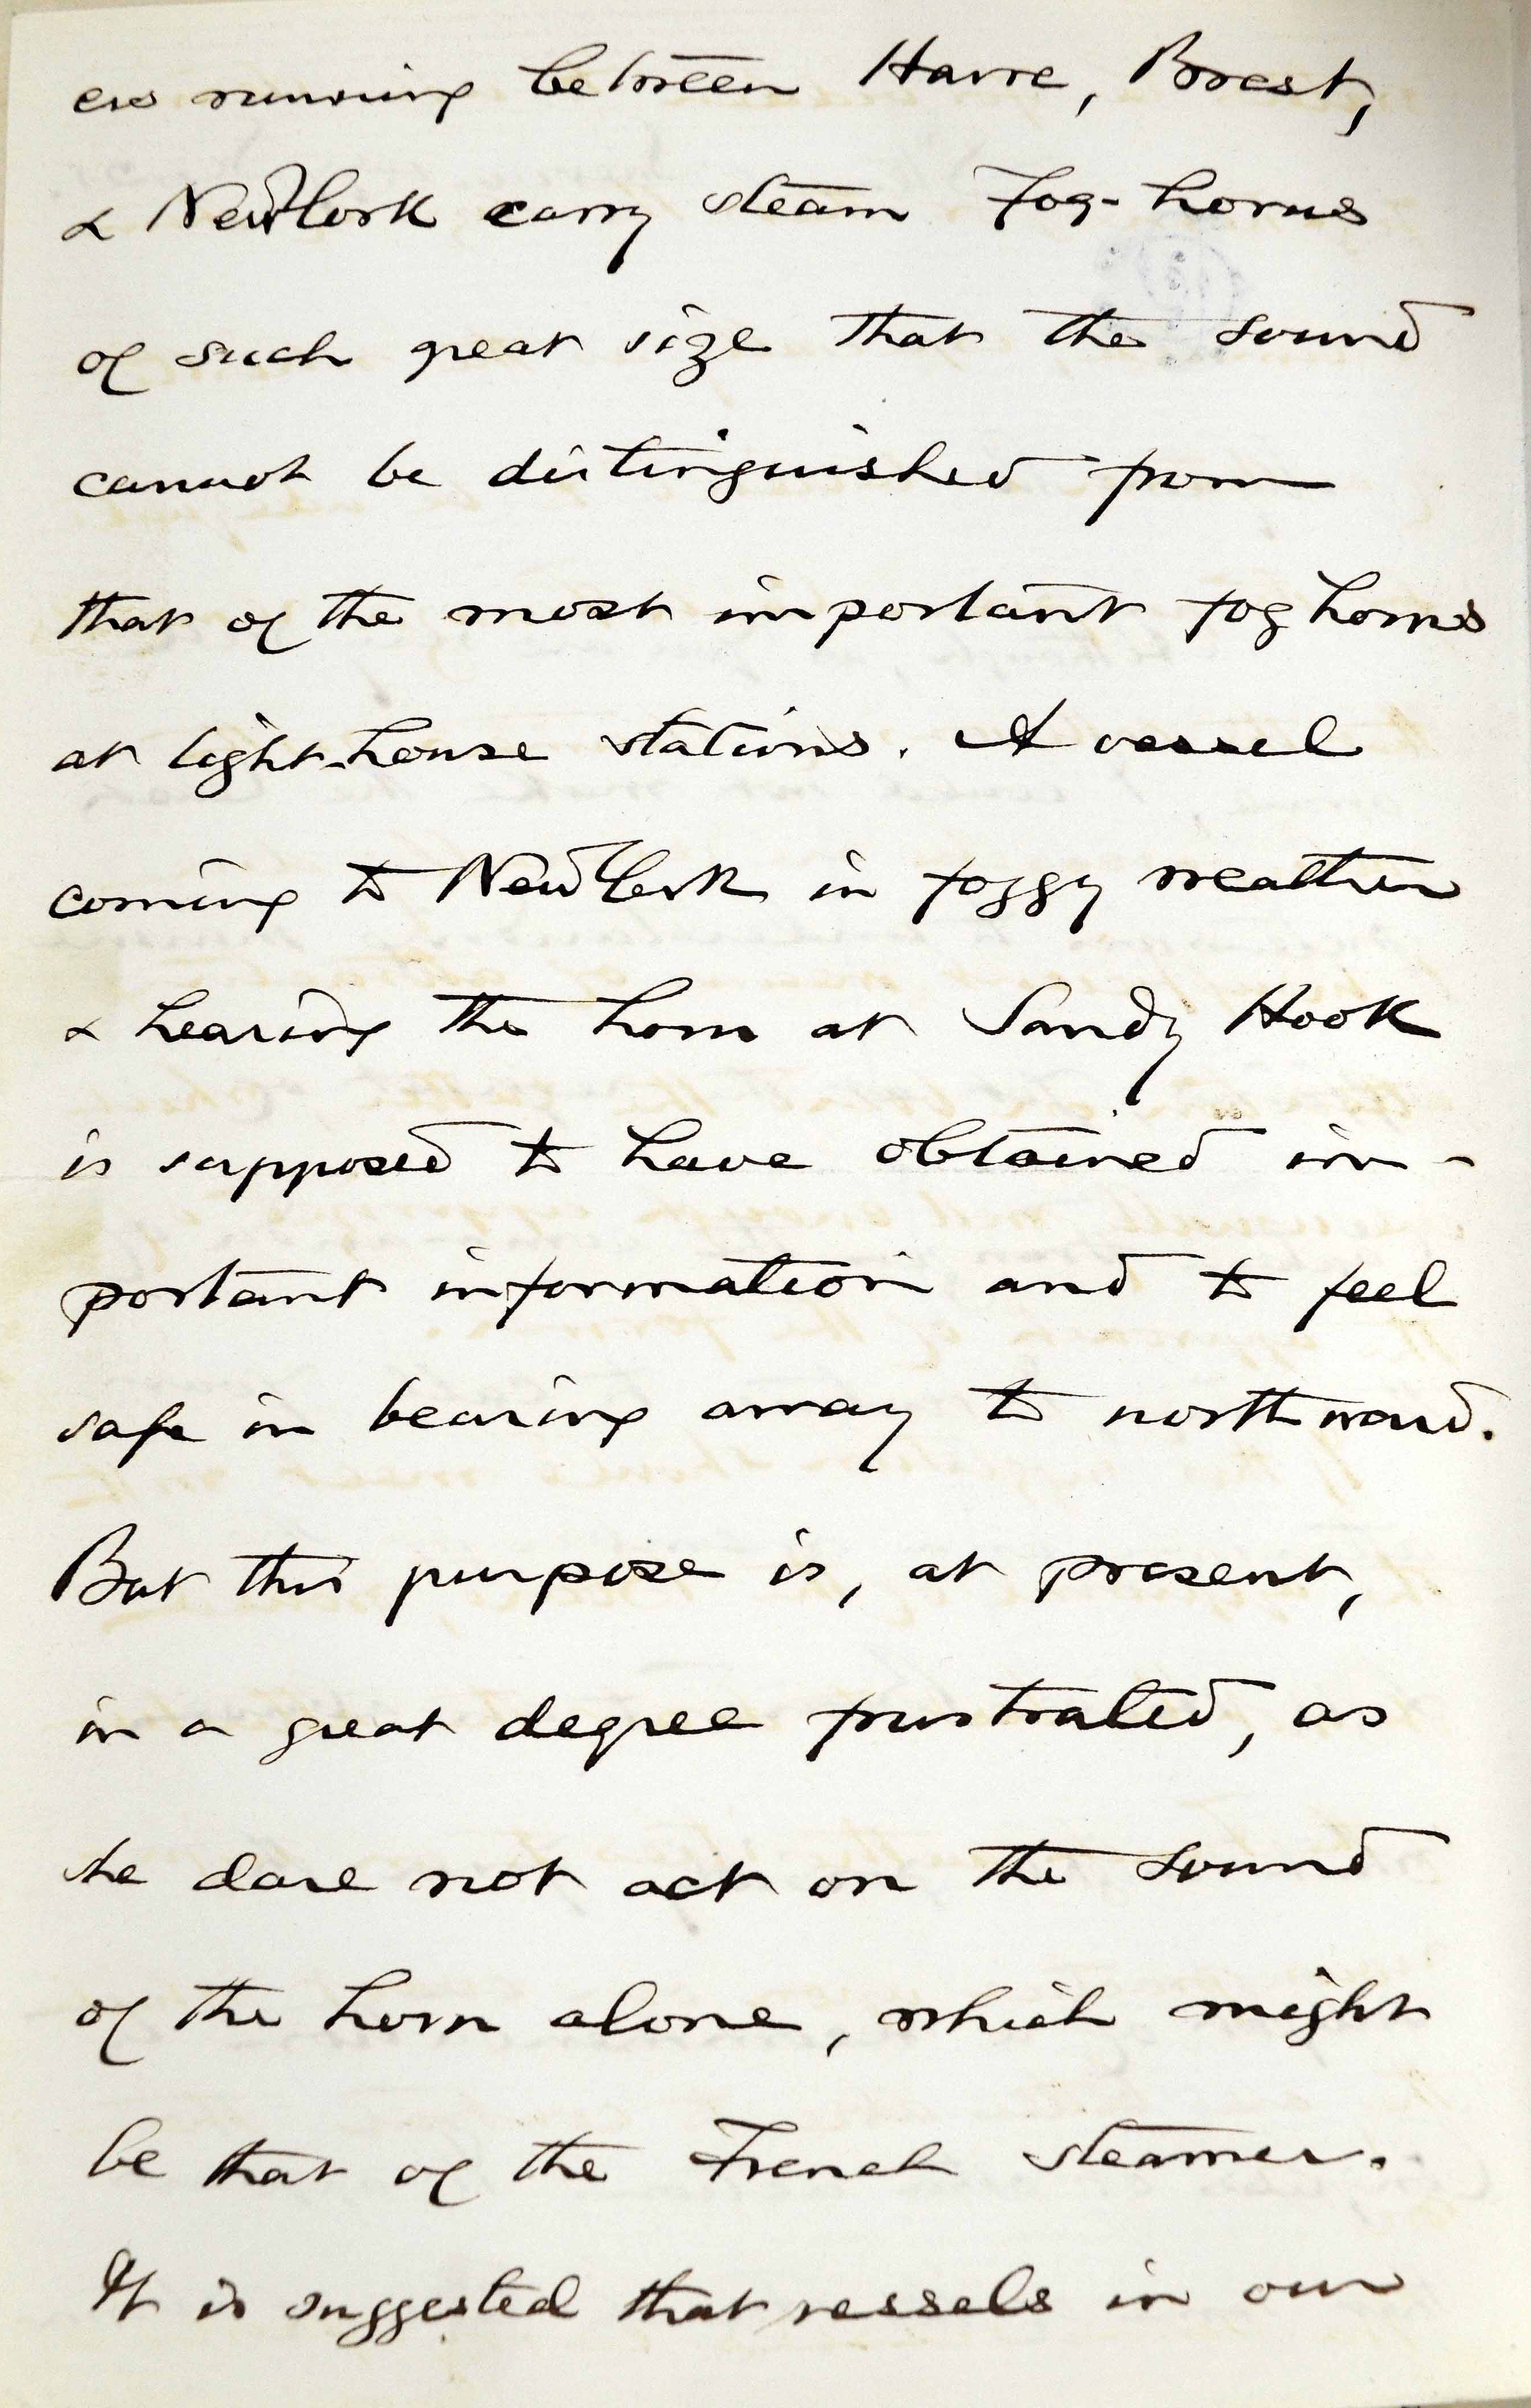 ers running between Havre, Brest,
& New York carry steam Fog-horns
of such great size that the sound
cannot be distinguished from
that of the most important fog horns
at light-house stations. A vessel
coming to New York in foggy weather
& hearing the horn at Sandy Hook
is supposed to have obtained im-
portant information and to feel
safe in bearing away to northward.
But this purpose is, at present,
in a great degree frustrated, as
she dare not act on the sound
of the horn alone, which might
be that of the French steamer.
It is suggested that vessels in our